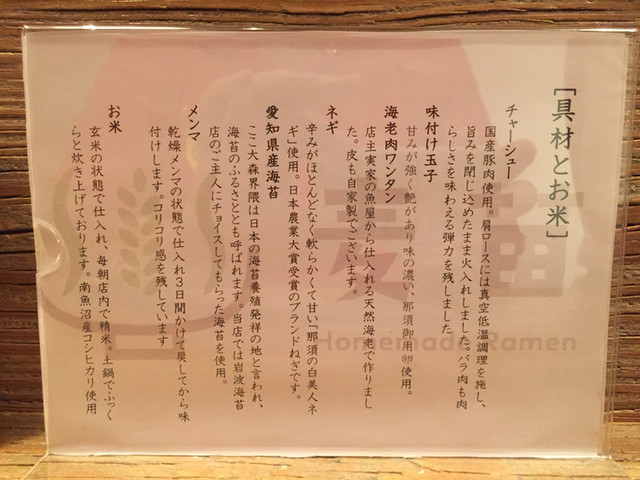 [具材とお米]
チャーシュー
国産豚肉使用。肩ロースには真空低温調理を施し、
旨みを閉じ込めたまま火入れしました。バラ肉も肉
らしさを味わえる弾力を残しました
味付け玉子
甘みが強く艶があり味の濃い、那須御用卵使用。
海老肉ワンタン
店主実家の魚屋から仕入れる天然海老で作りまし
た。皮も自家製でございます。
ネギ
辛みがほとんどなく軟らかくて甘い「那須の白美人ネ
ギ」使用。日本農業大賞受賞のブランドねぎです。
愛知県産海苔
ここ大森界隈は日本の海苔養殖発祥の地と言われ、
海苔のふるさととも呼ばれます。当店では岩波海苔
店のご主人にチョイスしてもらった海苔を使用。
メンマ
乾燥メンマの状態で仕入れ3日間かけて戻してから味
付けします。コリコリ感を残しています
お米
玄米の状態で仕入れ、毎朝店内で精米。土鍋でふっく
らと炊き上げております。南魚沼産コシヒカリ使用
麦苗
Homemade Ramen